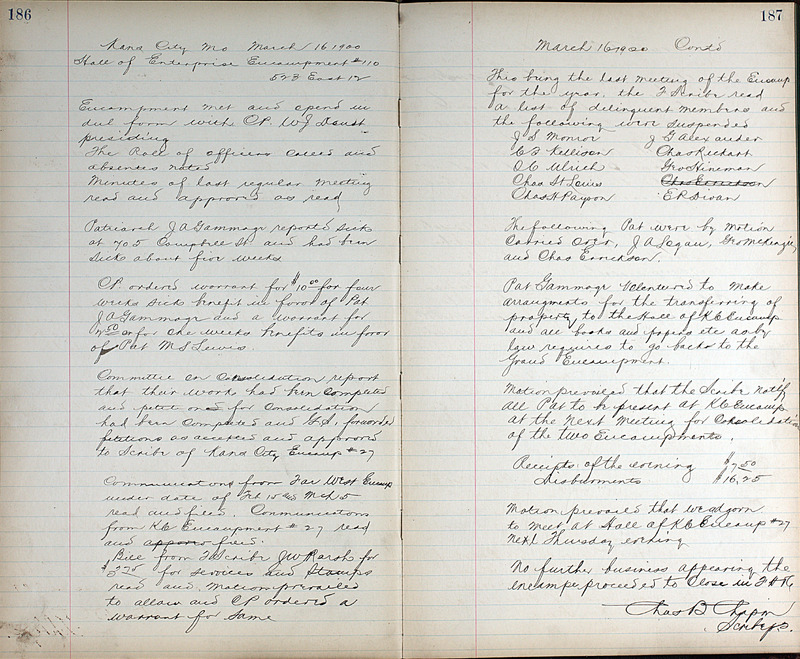 186
Kans City Mo March 16 1900
Hall of Enterprise Encampment #110
523 East 12
Encampment met and opend in
due form with C.P. W J
presiding
The Roll of officers called and
absentes noted
Minutes of last regular meeting
read and approved as read
Patriarch J A Gammage reported sick
at 705 Campbell St and had been
sick about five weeks
CP ordered warrant for $10 00 for four
weeks sick benefit in favor of Pat
J A Gammage and a warrant for
$2 50 for one weeks benefits in favor
of Pat M S Lewis.
Committee on Consolidation report
that their work had been completed
and petit ons for Consolidation
had been completed and G.S. forwarded
petitions as accepted and approved
to Scribe of Kans City Encamp #27
Communications from Far West Encamp
under date of Feb 15 & Mch 5
read and filed. Communications
from K C Encampment # 27 read
and filed.
Bill from F Scribe J W Parsh for
$2 75 for services and Stamps
read and Motion prevailed
to allow and C P ordered a
warrant for same
187
March 16 1900 Contd
This being the last meeting of the Encamp
for the year. the F Scribe read
a list of delinquent members and
the following were suspended
J S Monroe J G Alexander
C B Kellison Chas Rickart
O C Ulrich Geo Hineman
Chas St Lewis Chas Erricksen
Chas H Payson E R Divan
The following Pat were by motion
Carried over, J A Segau, Geo McKenzie,
and Chas Erricksen.
Pat Gammage Volentered to make
arraingments for the transferring of
property to the Hall of K C Encamp
and all books and papers etc as by
law requires to go back to the
Grand Encampment.
Motion prevailed that the Scribe notify
all Pat to be present at K C Encamp
at the Next Meeting for Consolidation
of the two Encampments.
Receipts of the evening $7.50
Disburments $16.25
Motion prevailed that we adjorn
to meet at Hall of K C Encamp #27
Next Thursday evening
No further business appearing the
encampe proceeded to Close in F H &
Chas B Chapin
Scribe